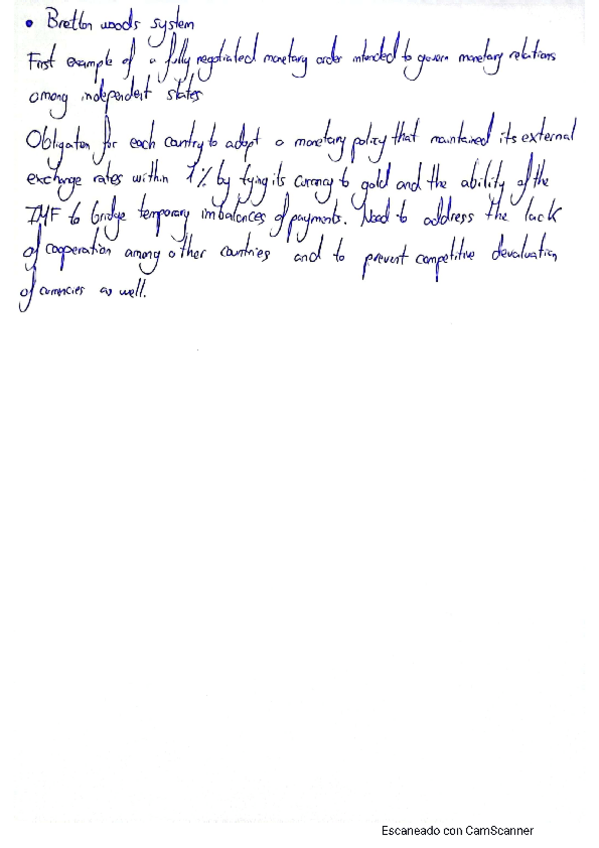 • Bretton woods system
First example of a fully negotiated monetary order intended to govern monetary relations
among independent states
Obligation for each country to adopt a monetary policy that maintained its external
exchange rates within 1% by tying its currency to gold and the ability of the
IMF to bridge temporary imbalances of payments. Need to address the lack
of cooperation among other countries and to prevent competitive devaluation
of currencies as well.
Escaneado con CamScanner